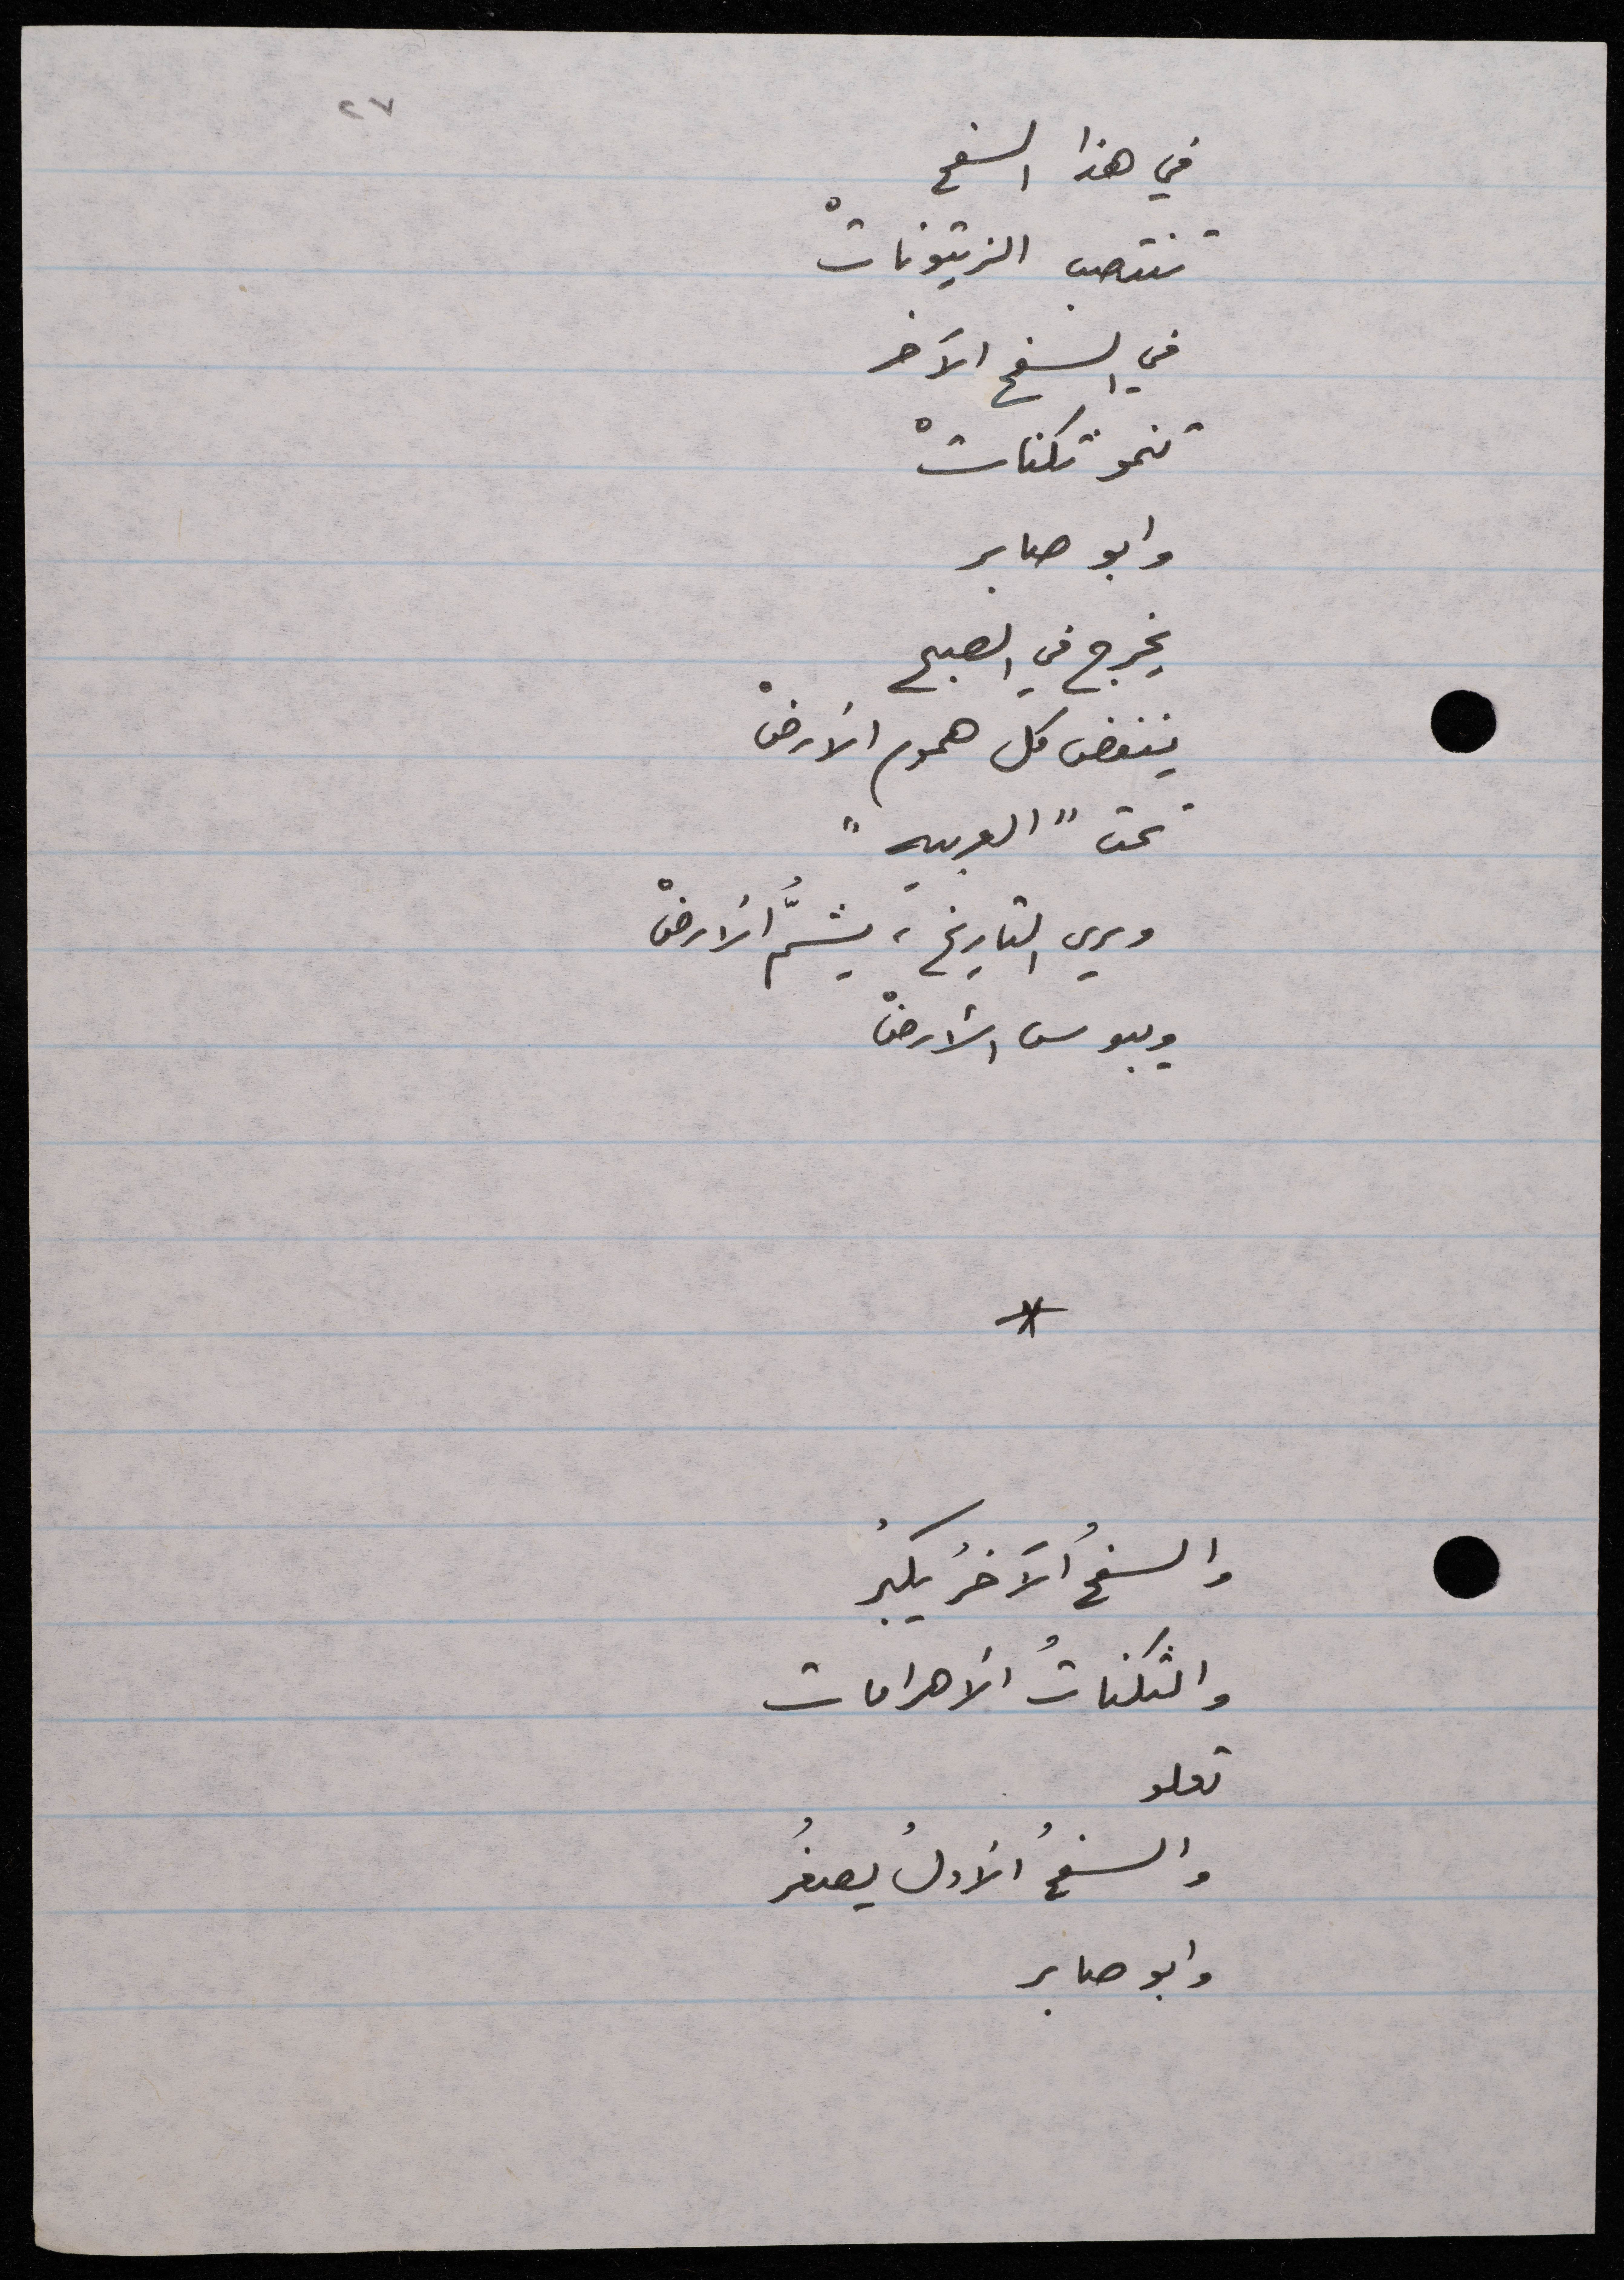 ٢٧
في هذا السفح
تنتصب الزيتوناتْ
في السفح الآخر
تنمو ثكناتْ
وابو صابر
يخرج في الصبح
ينفض كل هموم الأرضْ
تحت "العربيه"
ويرى التاريخ، يشمُّ الأرضْ
ويبوس الأرضْ
*
والسفحُ الآخرُ يكبرُ
والثكناتُ الأهرامات
تعلو
والسفحُ الأولُ يصغرُ
وابو صابر